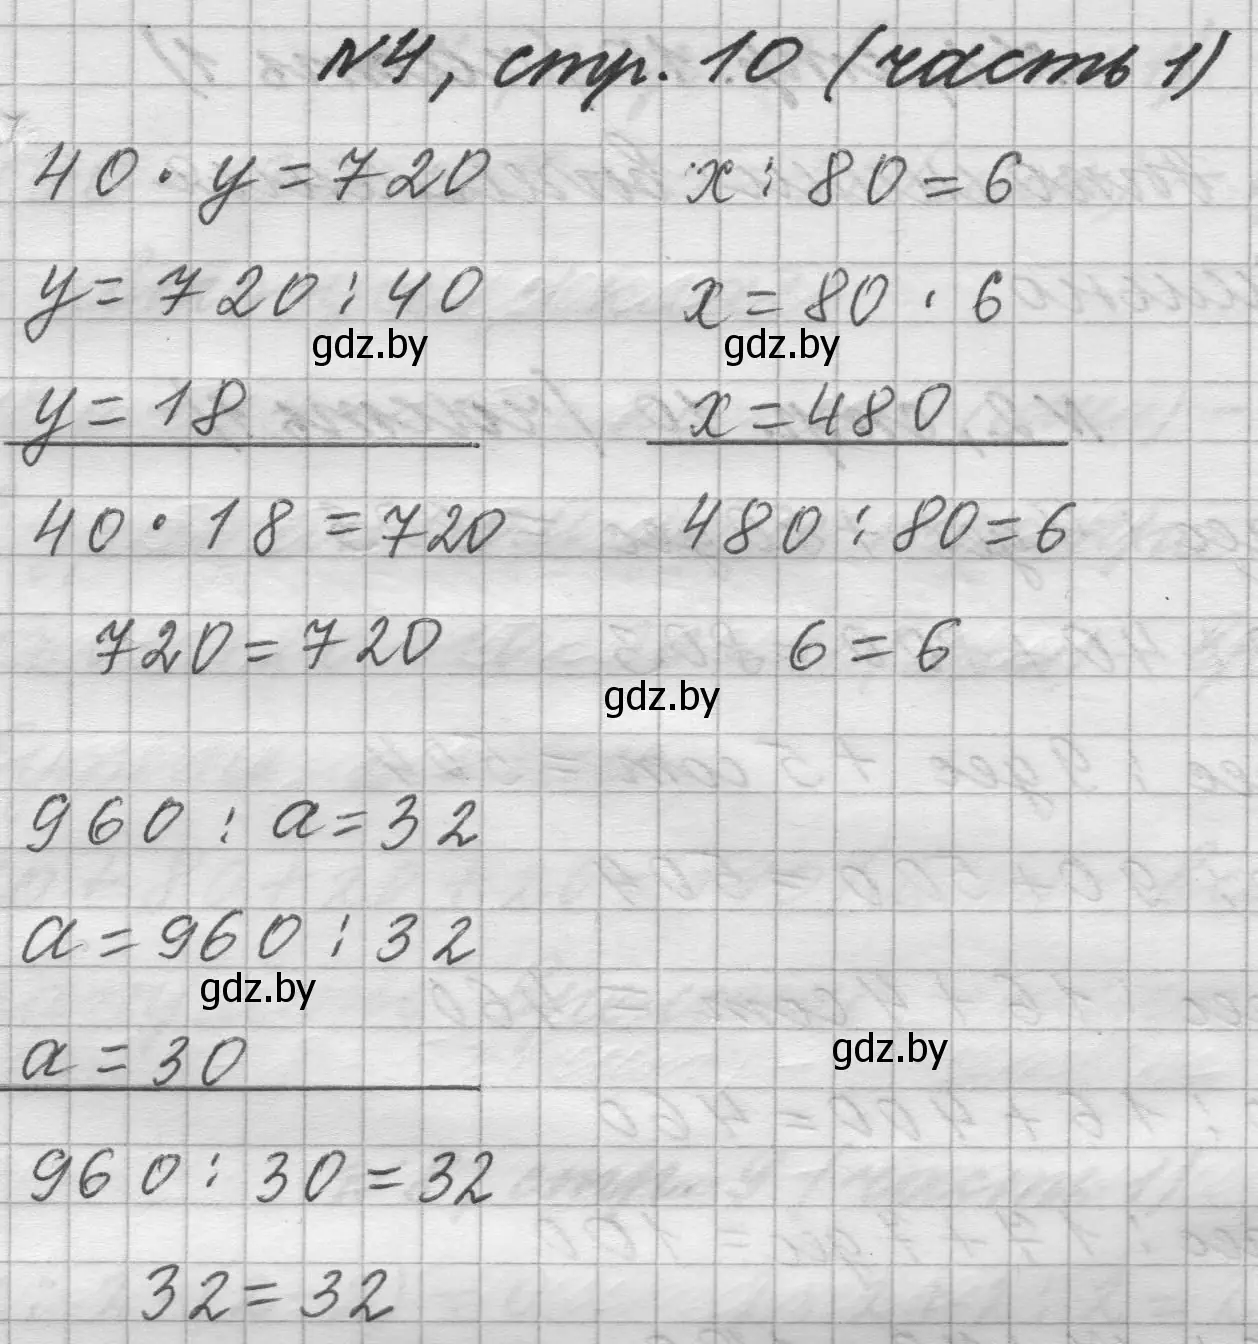 №4, стр. 10 (часть 1)
40 · y = 720
y = 720 : 40
gdz.by
y = 18
40 · 18 = 720
720 = 720
x : 80 = 6
x = 80 · 6
gdz.by
x = 480
480 : 80 = 6
6 = 6
gdz.by
960 : a = 32
a = 960 : 32
gdz.by
a = 30
960 : 30 = 32
32 = 32
gdz.by